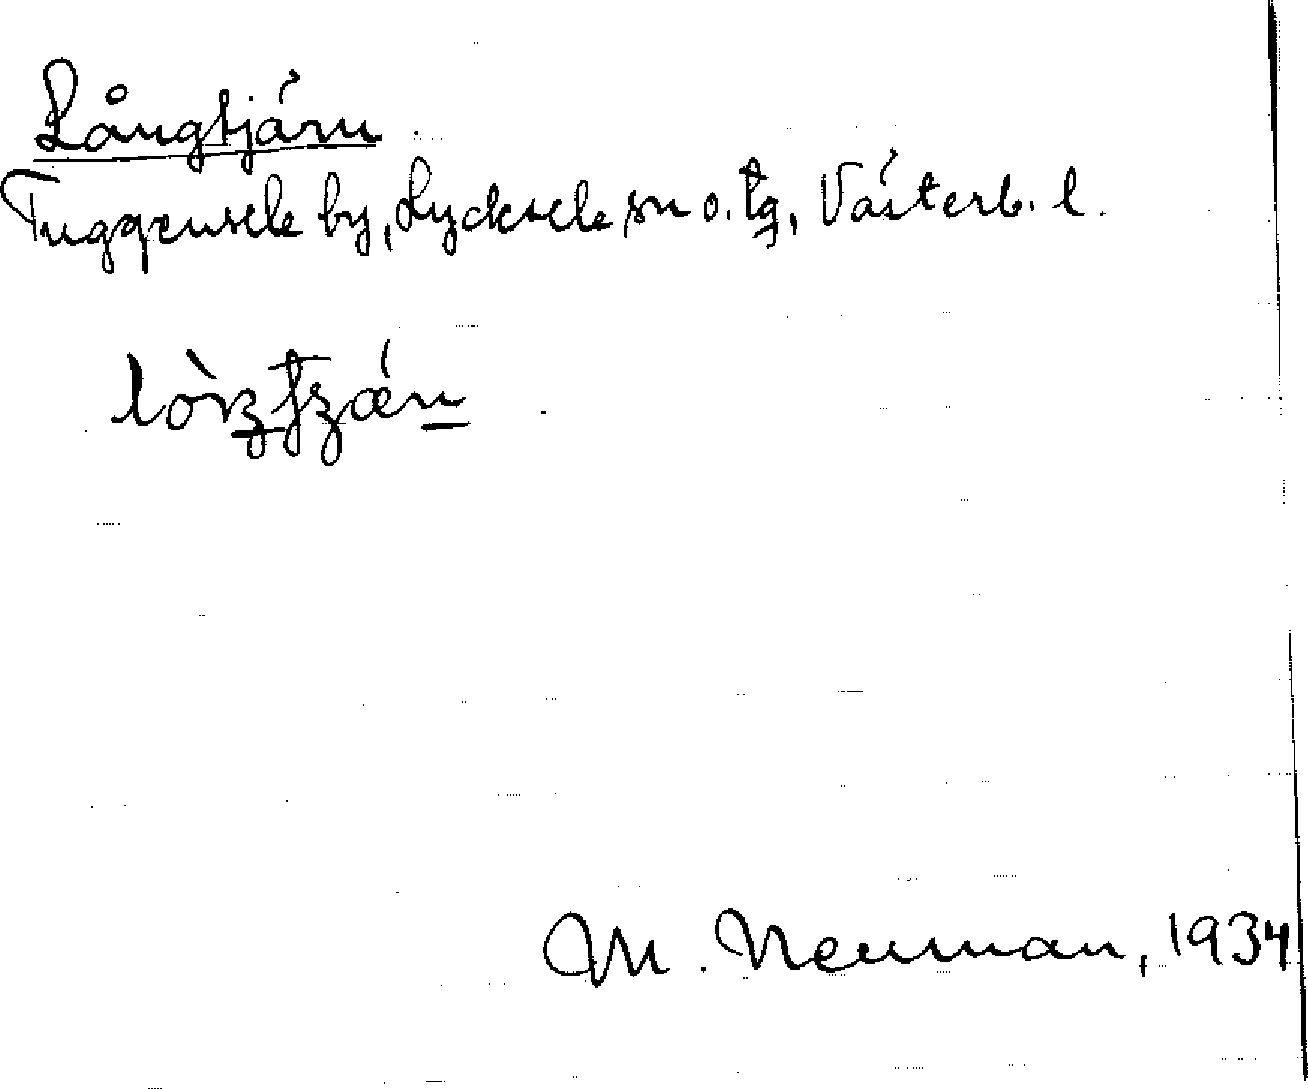 Långtjärn
Tuggensele by, Lycksele sn o. tg, Västerb. l.
M. Neuman, 1934